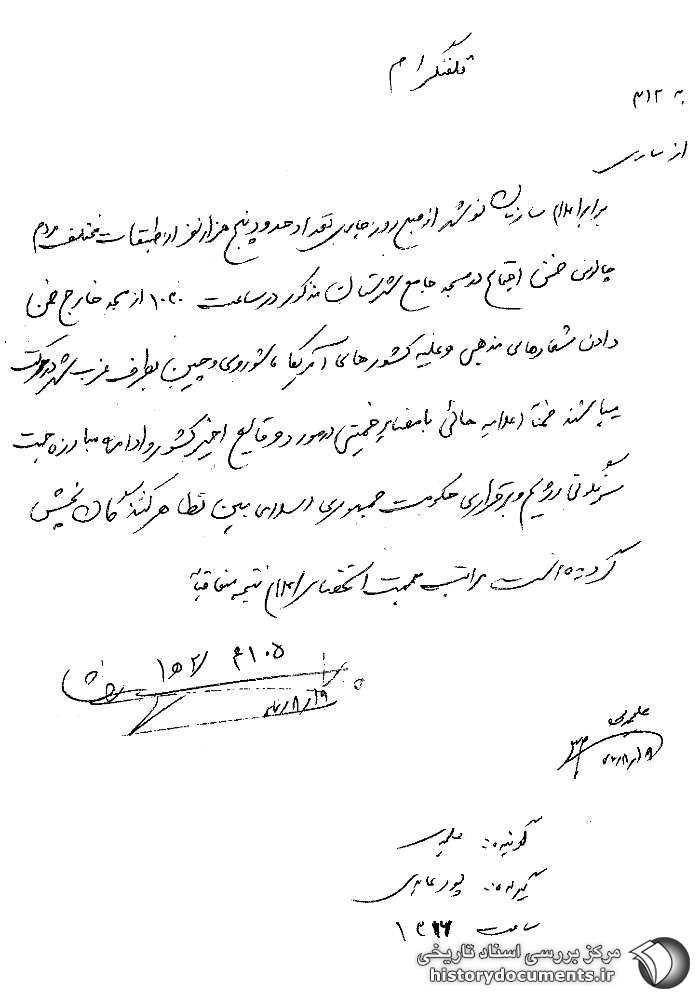 تلفنگرام
به ۳۱۲
از ساری
برابر اعلام سازمان نوشهر از صبح روز جاری تعداد حدود پنج هزار نفر از طبقات مختلف مردم
چالوس ضمن اجتماع در مسجد جامع شهرستان مذکور در ساعت ۱۰۳۰ از مسجد خارج ضمن
دادن شعارهای مذهبی و علیه کشورهای آمریکا شوروی و چین بطرف غرب شهر در حرکت
میباشند ضمناً اعلامیه هائی با امضای خمینی در مورد وقایع اخیر کشور و ادامه مبارزه جهت
سرنگونی رژیم و برقراری حکومت جمهوری اسلامی بین تظاهرکنندگان پخش
گردیده است مراتب جهت استحضار اعلام نتیجه متعاقباً
۶۱۰۵
۱۹/۸/
۱۹/۸/
گوینده:
گیرنده: پورعابدی
ساعت
مرکز بررسی اسناد تاریخی
historydocuments.ir